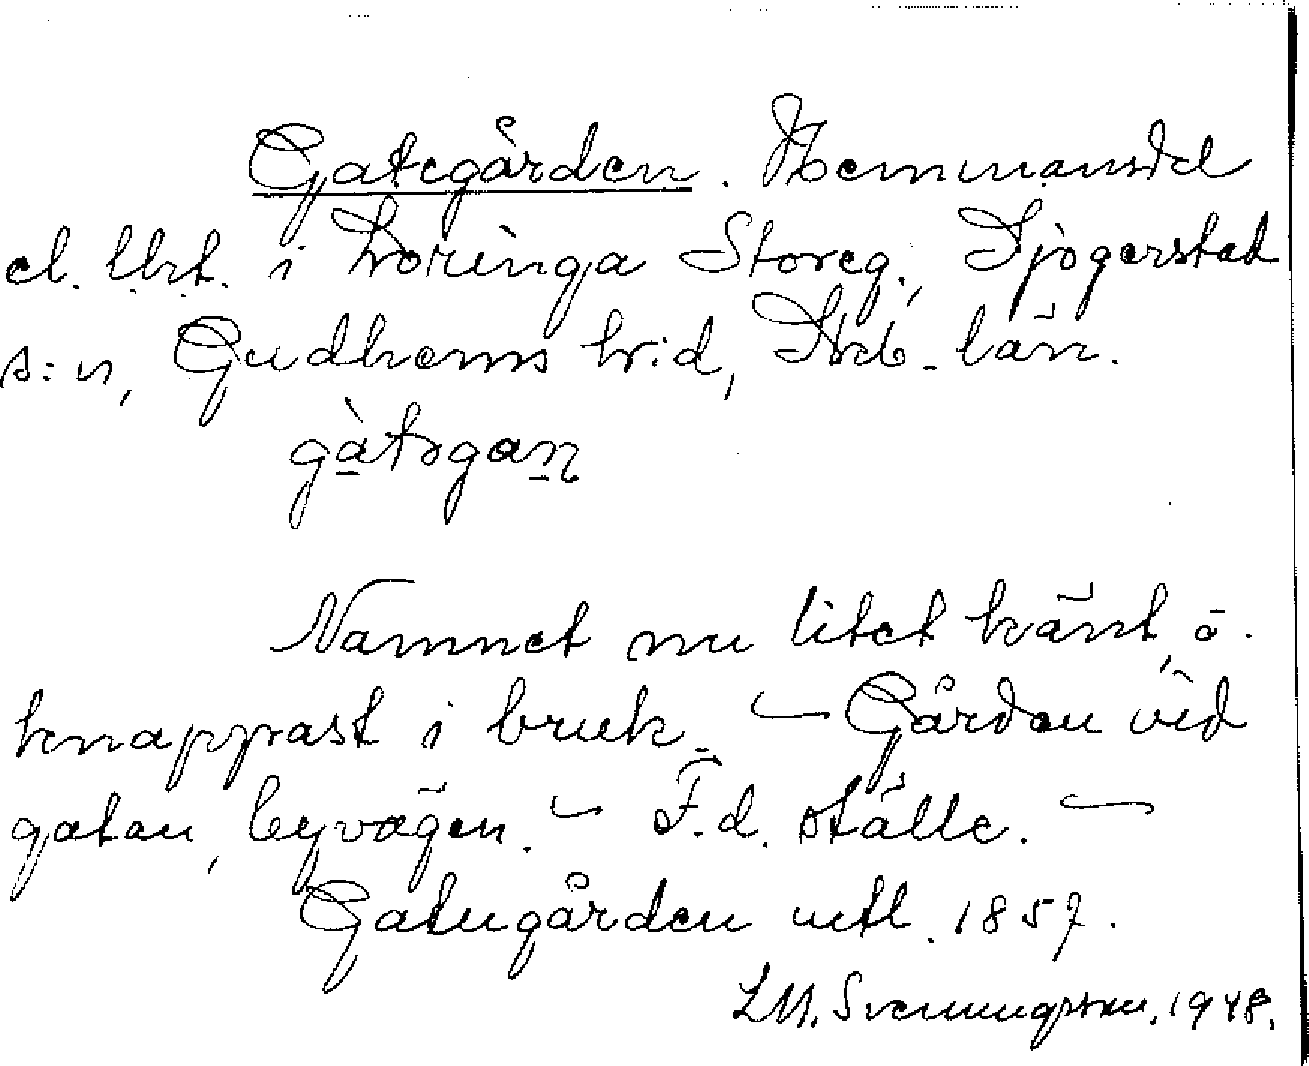 Gategården. Hemmansdel
el. lht. i Loringa Storeg., Sjogerstad
s:n, Gudhems h:d, Skb. län.
gàtəgaṉ
Namnet nu litet känt, o.
knappast i bruk. — Gården vid
gatan, byvägen. — F.d. ställe. —
Gatugården utl. 1857.
LM. Svenungsson. 1948.